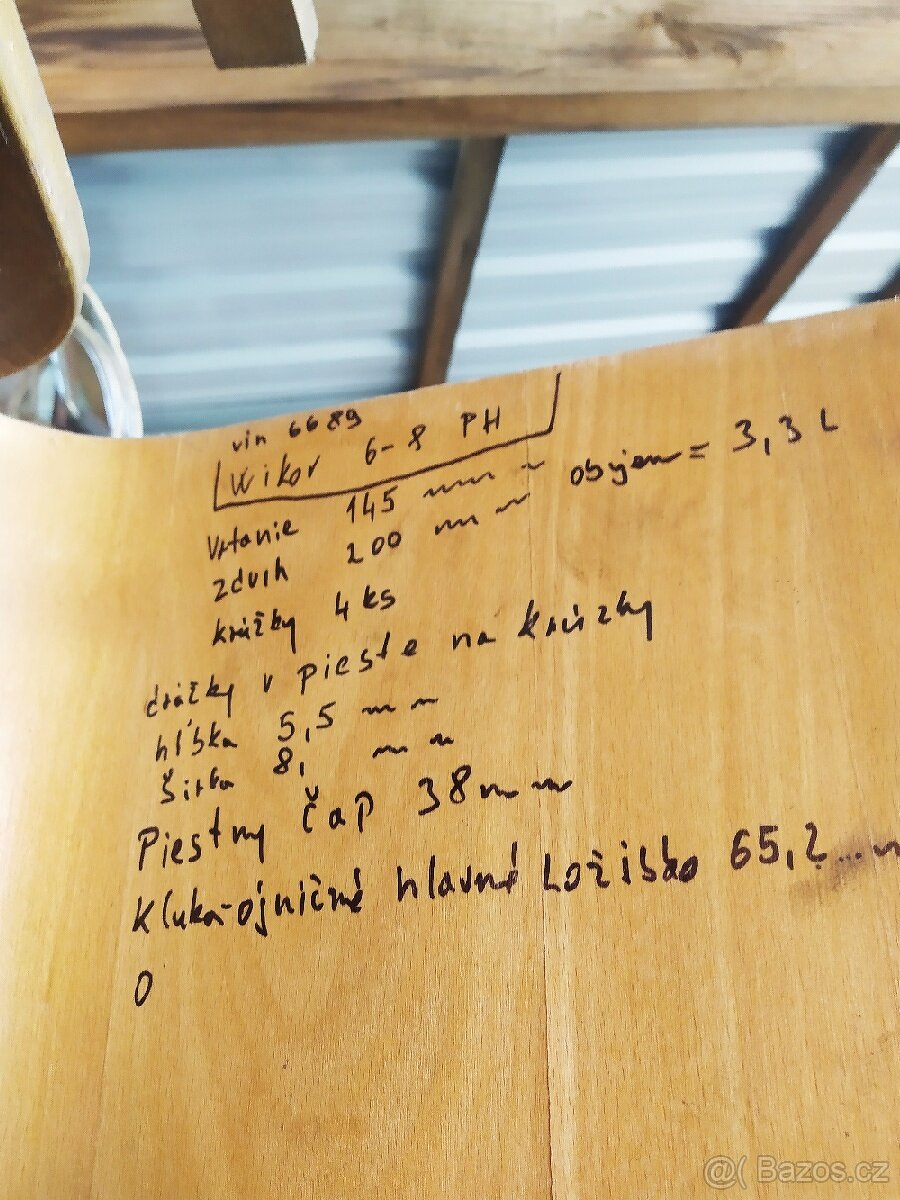 vin 6689
Wikov 6-8 PH
Vrtanie 145 mm objem = 3,3 L
zdvih 200 mm
krúžky 4 ks
drážky v pieste na krúzky
hĺbka 5,5 mm
šírka 8, mm
Piestny čap 38 mm
Kluka-ojničné hlavné Ložisko 65,2
0
@( Bazos.cz